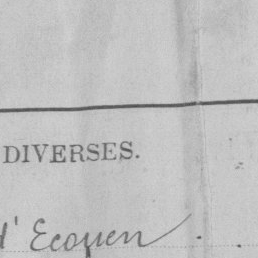 DIVERSES.
d'Ecouen